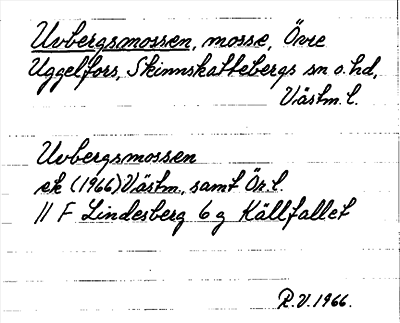 Uvbergsmossen, mosse, Övre
Uggelfors, Skinnskattebergs sn o. hd,
Västm. l.
Uvbergsmossen
ek (1966) Västm., samt Ör. l.
11 F Lindesberg 6 g Källfallet
R.V. 1966.